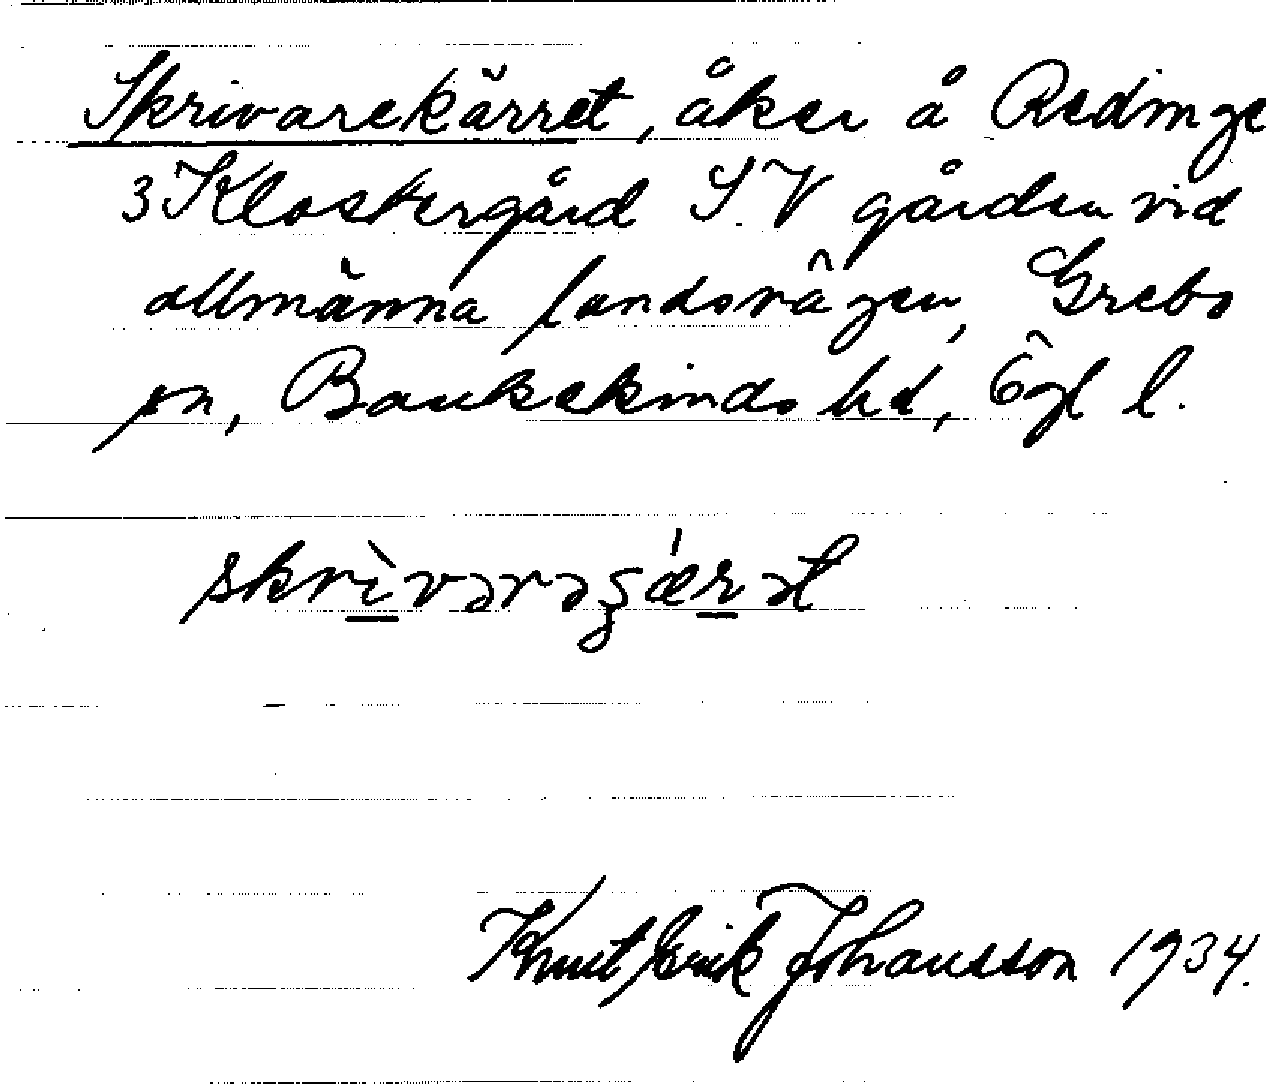 Skrivarekärret, åker å Redinge
3 Klostergård S.V gården vid
allmänna landsvägen, Grebo
sn, Bankekinds hd, Ögl l.
skrìvərəʂǽrət
Knut Erik Johansson 1934.